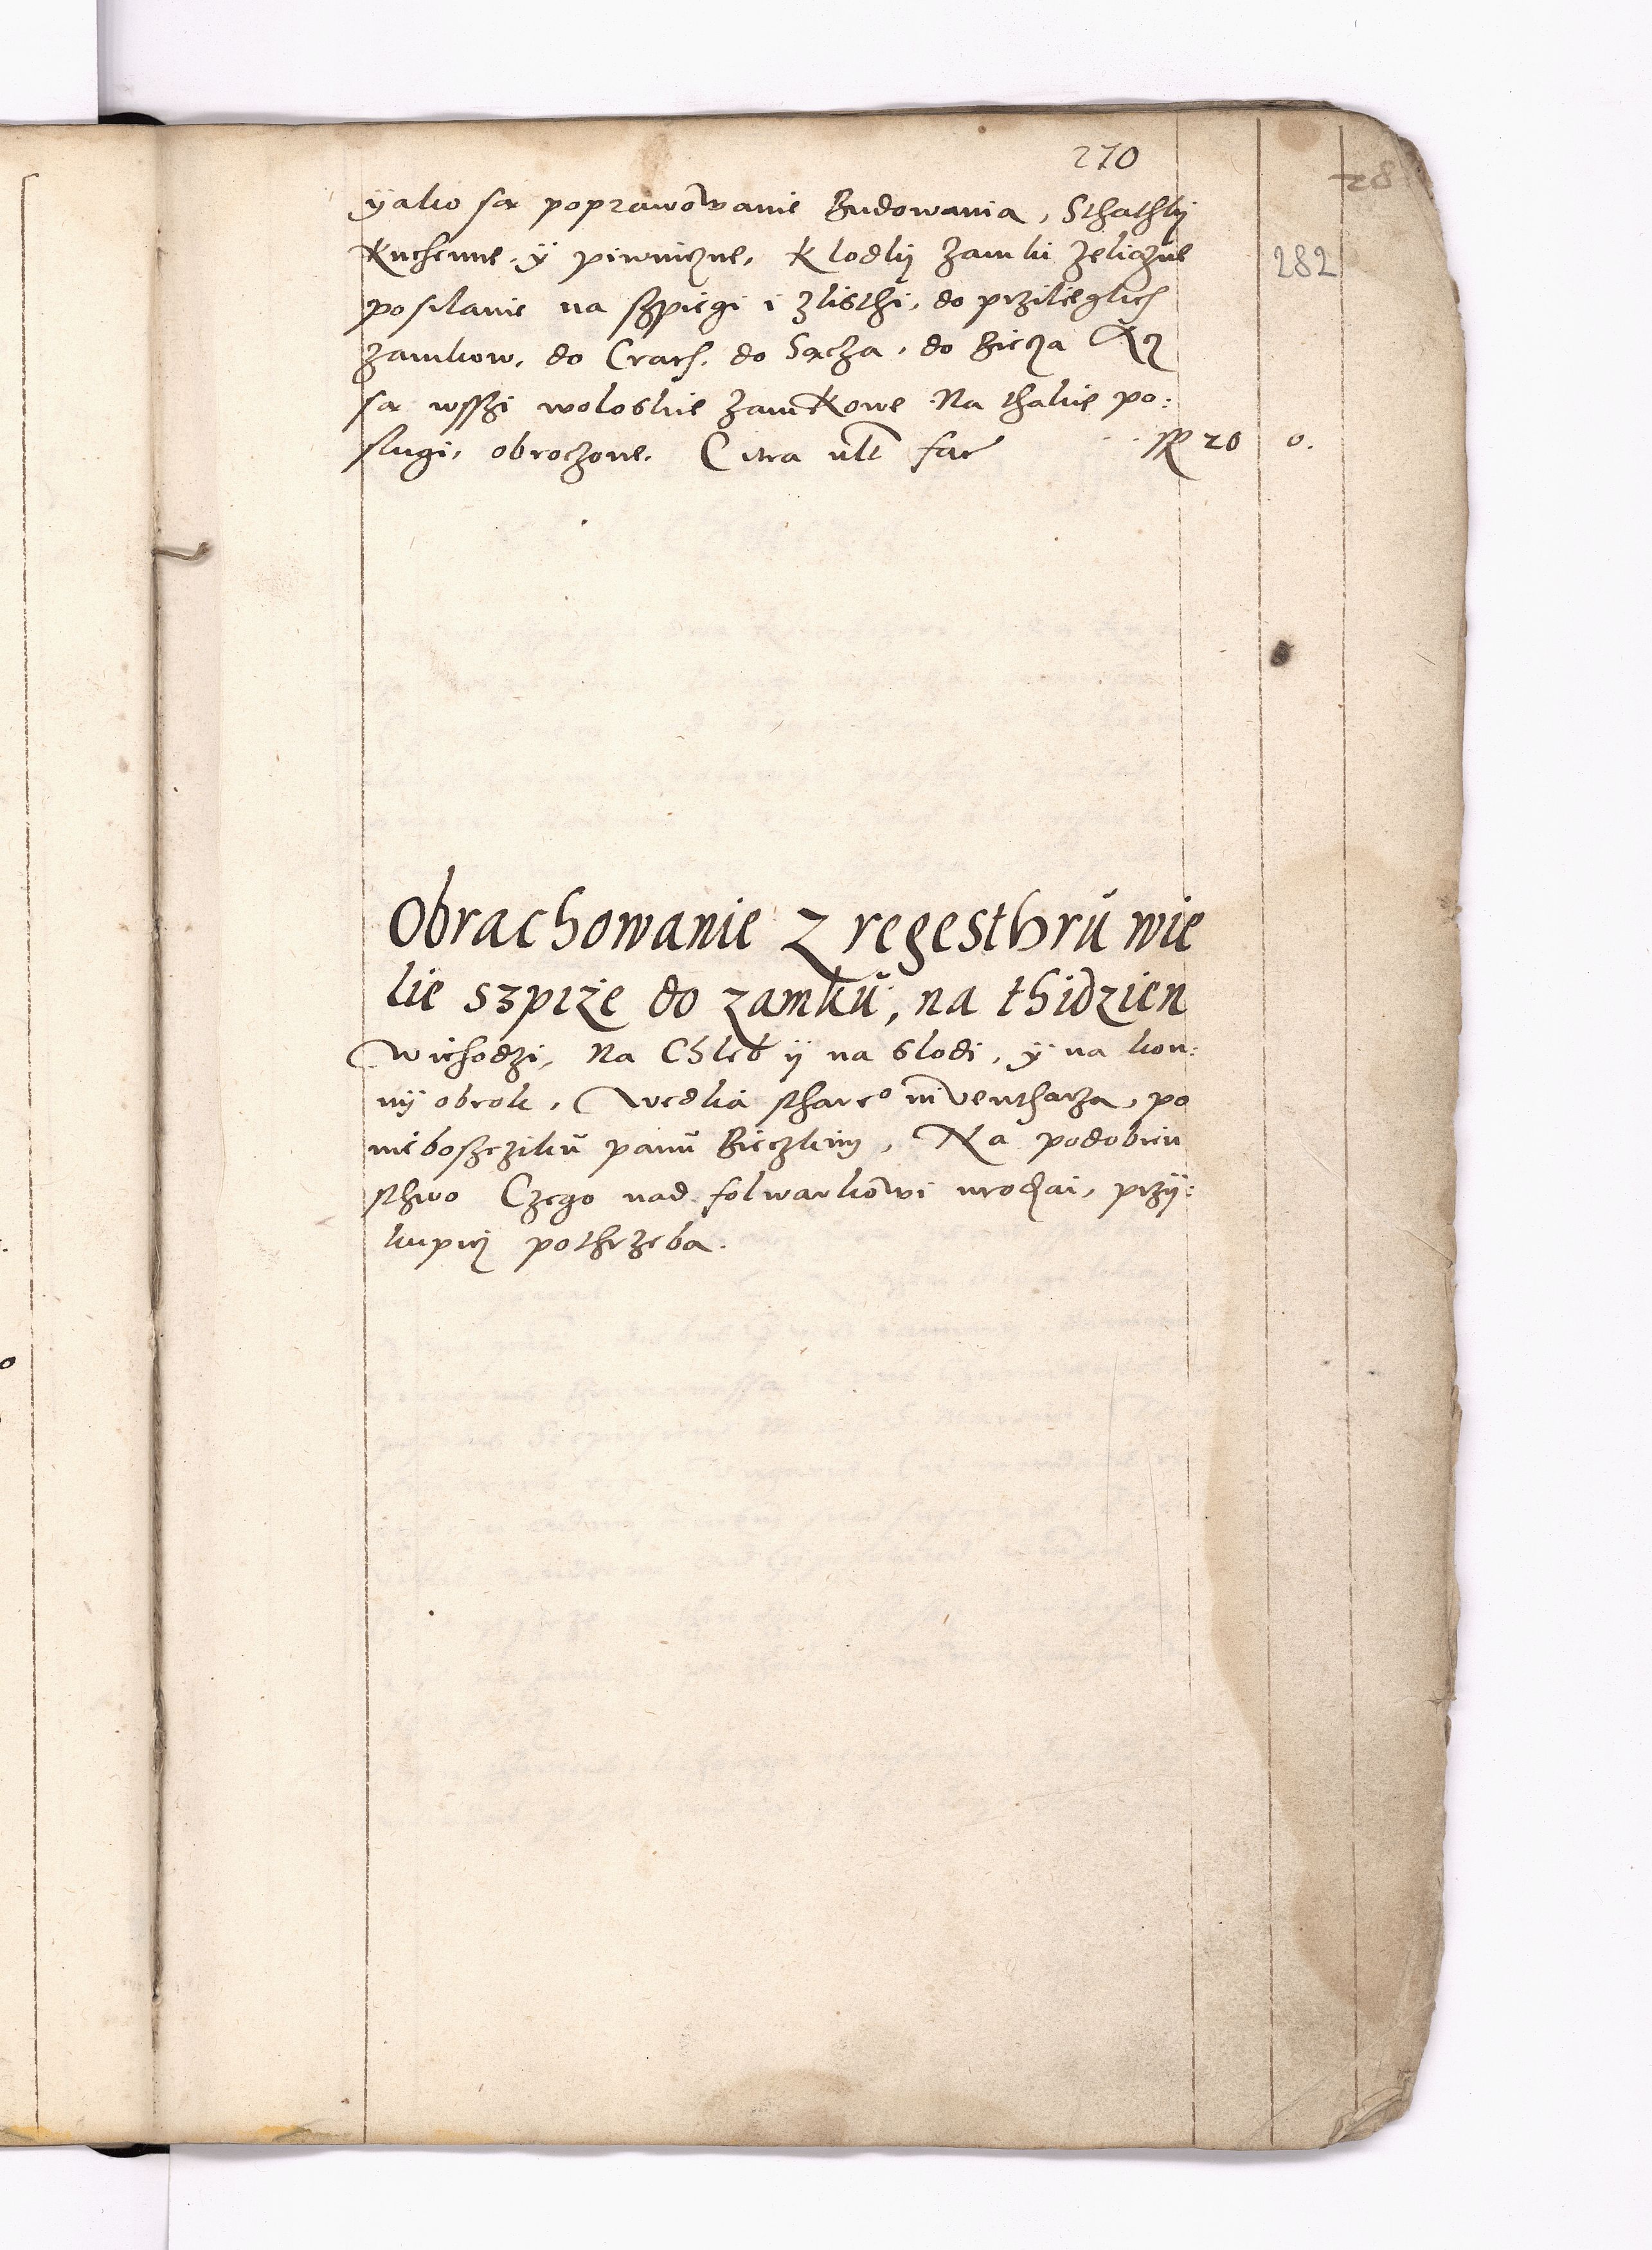 270
28
yako są poprawowanie Budowania, Sthathky
282
Kuchenne, y piwniczne, Klodky zamki zeliezne
posilanie na szpiegi i zlisthi, do przilieglich
zamkow, do Crach, do Sącza, do Biecza Az
są wsszi woloskie zamkowe Na thakie po:
slugi, obroczone, Citra ult fac 20 0.
Obrachowanie z regesthrŭ wie
lie szpize do zamkŭ, na thidzien
Wichodzi, Na Chleb y na slodi, y na kon:
ny obrok, Wedlia share° inventharza, po
nieboszczikŭ panŭ Bieczkim, Na podobien
sthwo Czego nad folwarkowi urodzai, przy:
kupicz pothrzeba.